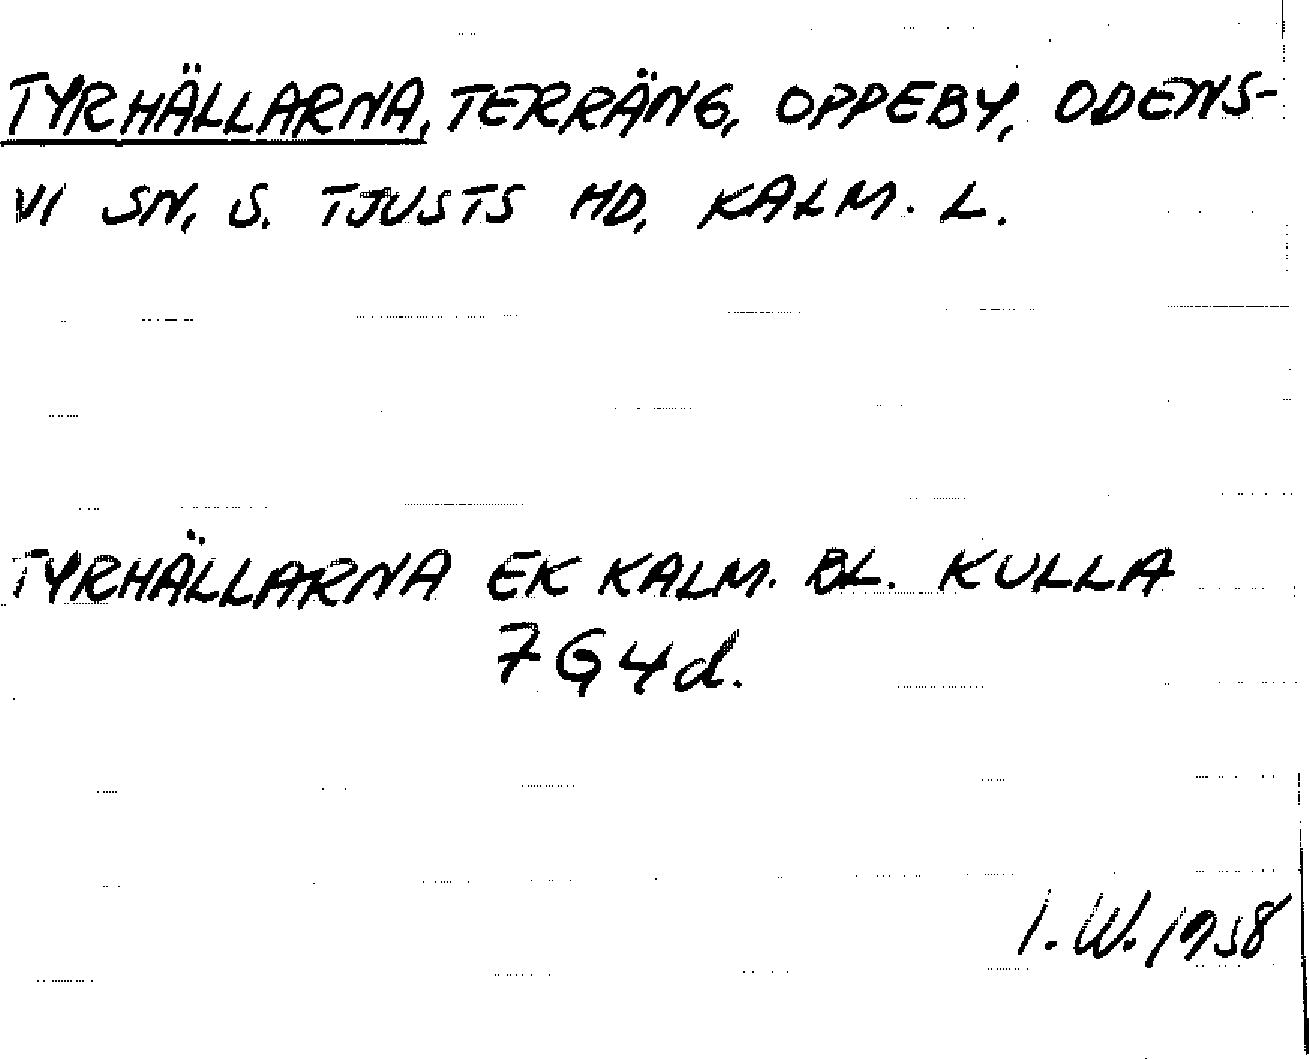 TYRHÄLLARNA, TERRÄNG, OPPEBY, ODENS-
VI SN, S. TJUSTS HD, KALM. L.
TYRHÄLLARNA EK KALM. BL. KULLA
7G4d.
I.W. 1958